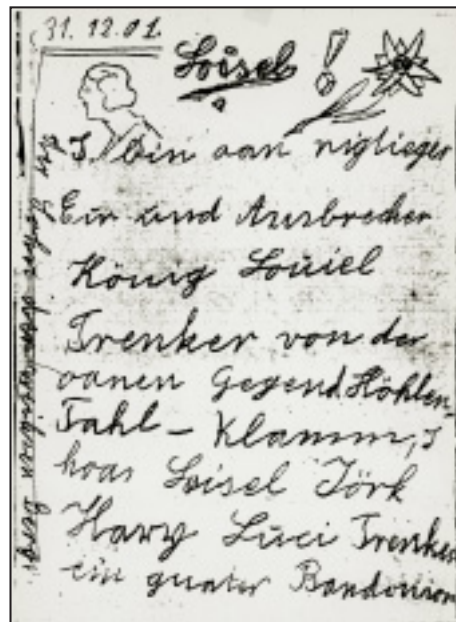 31.12.01.
Loisel!
I bin oan
Ein und Ausbrecher
König Louiel
Trenker von der
oanen Gegend Höhlen-
Tahl – Klamm, I
hoas Loisel Jörk
Hary Luci Trenker
ein guater